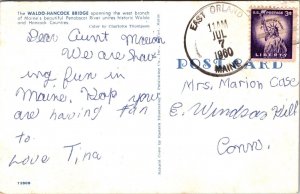 The WALDO-HANCOCK BRIDGE spanning the west branch
of Maine's beautiful Penobscot River unites historic Waldo
and Hancock Counties.
Color by Charlotte Thompson
Dear Aunt Marion
We are hav
ing fun in
Maine. Hop your
are having fan
to
Love Tina
12908
EAST ORLAND
11 AM
JUL
1960
MAINE
U.S. POSTAGE 3¢
LIBERTY
POST CARD
Mrs. Marion Case
E. Windsor Hill
Conn.